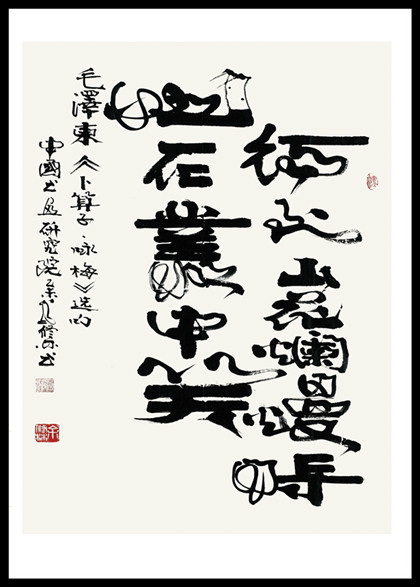 待到山花爛漫時
她在叢中笑
毛澤東《卜算子·咏梅》选句
中國书画研究院